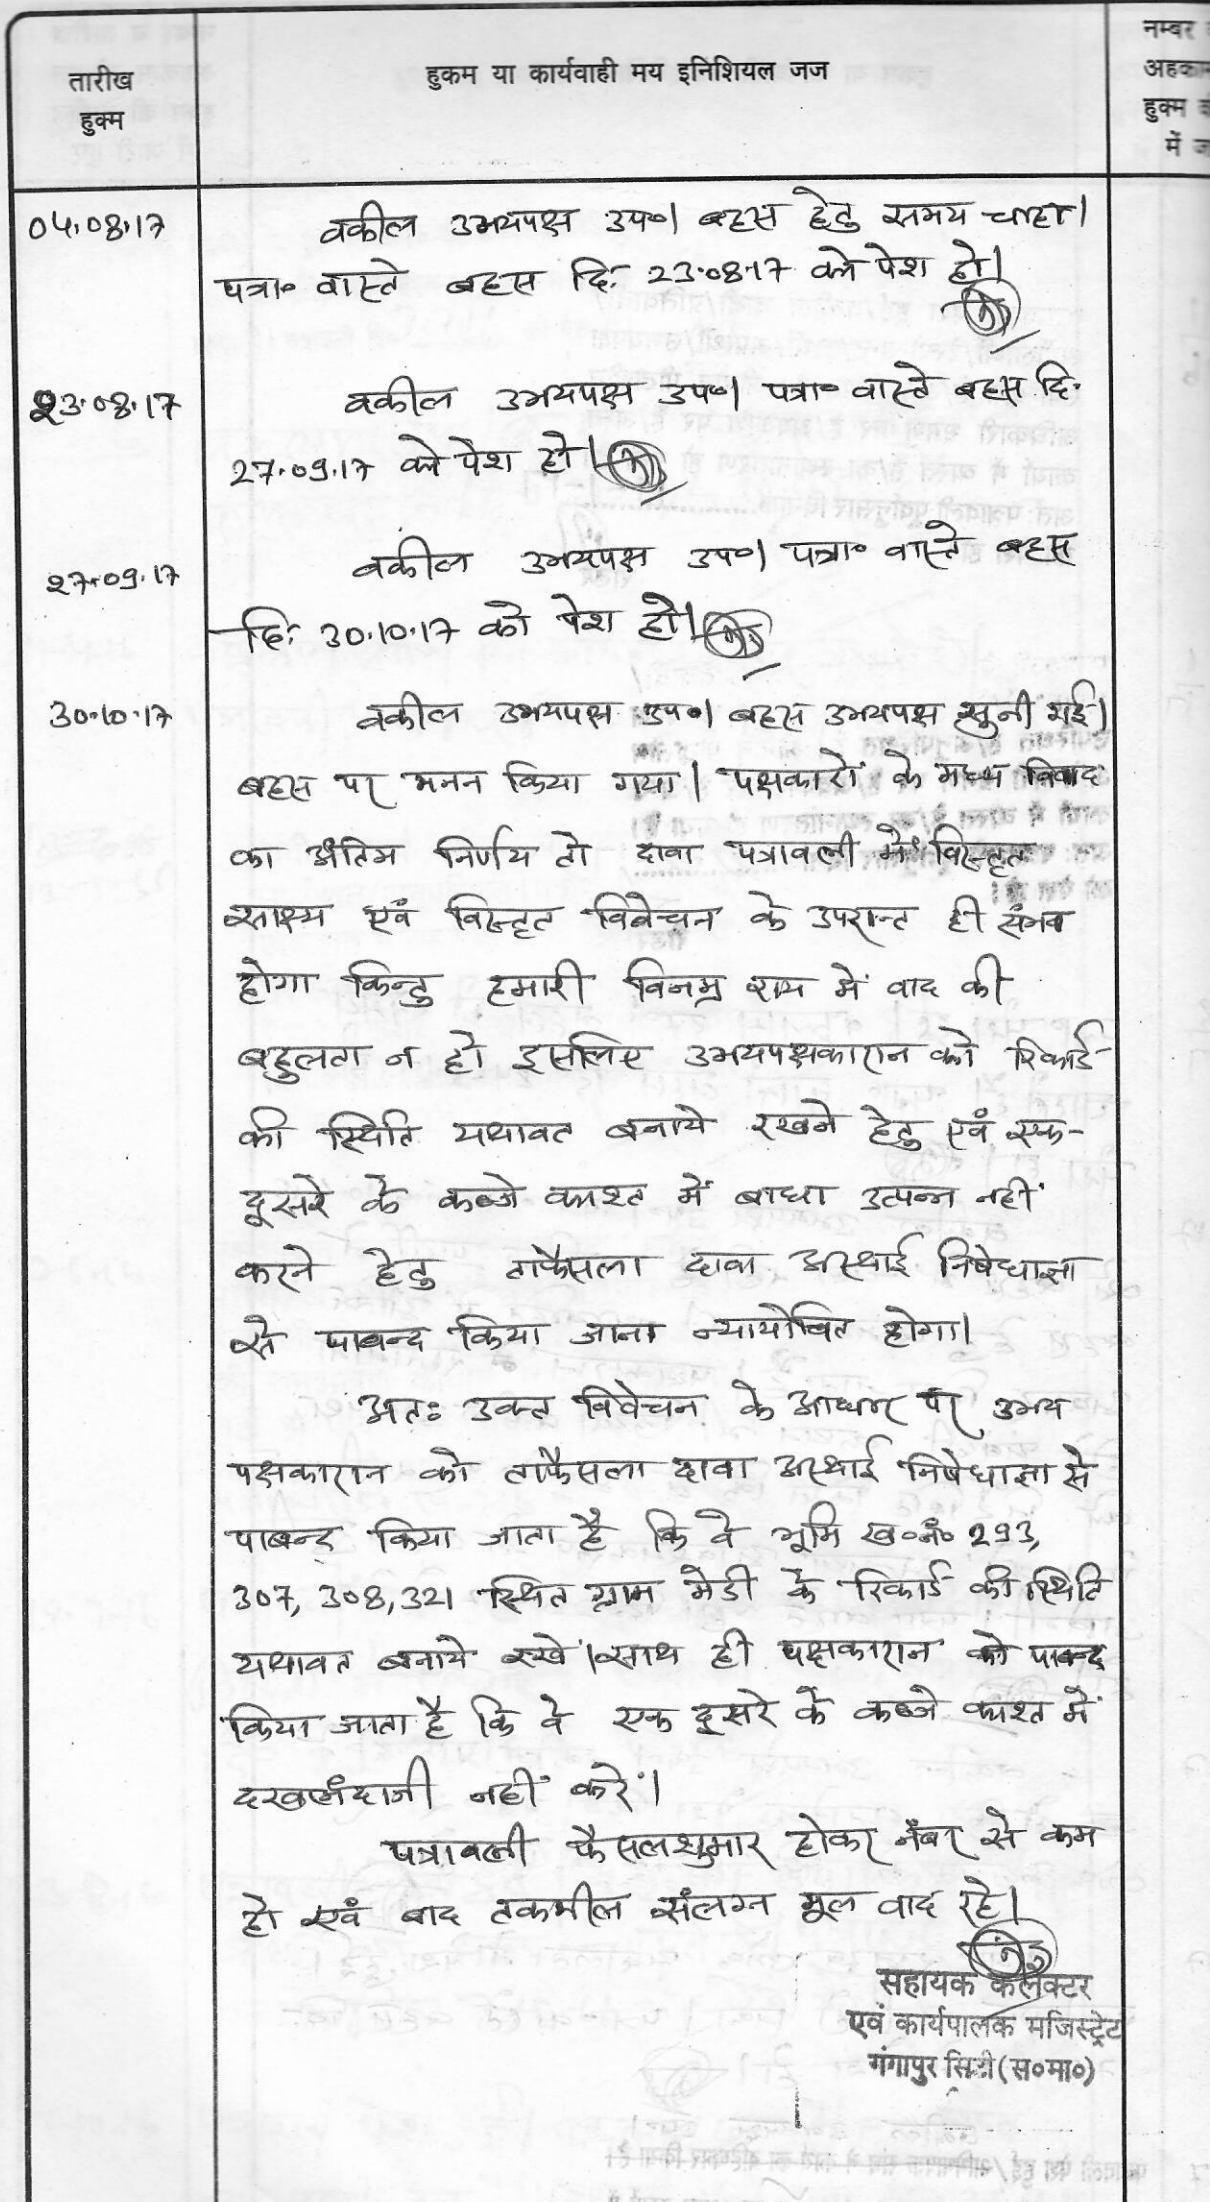 तारीख
हुक्म
हुकम या कार्यवाही मय इनिशियल जज
नम्बर
अहकाम
हुक्म
में
04.08.17 वकील उभयपक्ष उप०। बहस हेतु समय चाहा।
पत्रा० वास्ते बहस दि. 23.08.17 को पेश हो।
23.08.17 वकील उभयपक्ष उप०। पत्रा० वास्ते बहस दि.
27.09.17 को पेश हो।
27.09.17 वकील उभयपक्ष उप०। पत्रा० वास्ते बहस
दि. 30.10.17 को पेश हो।
30.10.17 वकील उभयपक्ष उप०। बहस उभयपक्ष सुनी गई।
बहस पर मनन किया गया। पक्षकारों के मध्य विवाद
का अंतिम निर्णय तो दावा पत्रावली में विस्तृत
साक्ष्य एवं विस्तृत विवेचन के उपरान्त ही संभव
होगा किन्तु हमारी विनम्र राय में वाद की
बहुलता न हो इसलिए उभयपक्षकारान को रिकार्ड
की स्थिति यथावत बनाये रखने हेतु एवं एक-
दूसरे के कब्जे काश्त में बाधा उत्पन्न नहीं
करने हेतु ताफैसला दावा अस्थाई निषेधाज्ञा
से पाबन्द किया जाना न्यायोचित होगा।
अतः उक्त विवेचन के आधार पर उभय
पक्षकारान को ताफैसला दावा अस्थाई निषेधाज्ञा से
पाबन्द किया जाता है कि वे भूमि ख०नं० 293,
307, 308, 321 स्थित ग्राम मेडी के रिकार्ड की स्थिति
यथावत बनाये रखे। साथ ही पक्षकारान को पाबन्द
किया जाता है कि वे एक दूसरे के कब्जे काश्त में
दखलंदाजी नहीं करें।
पत्रावली फैसलशुमार होकर नंबर से कम
हो एवं बाद तकमील संलग्न मूल वाद रहे।
सहायक कलेक्टर
एवं कार्यपालक मजिस्ट्रेट
गंगापुर सिटी (स०मा०)